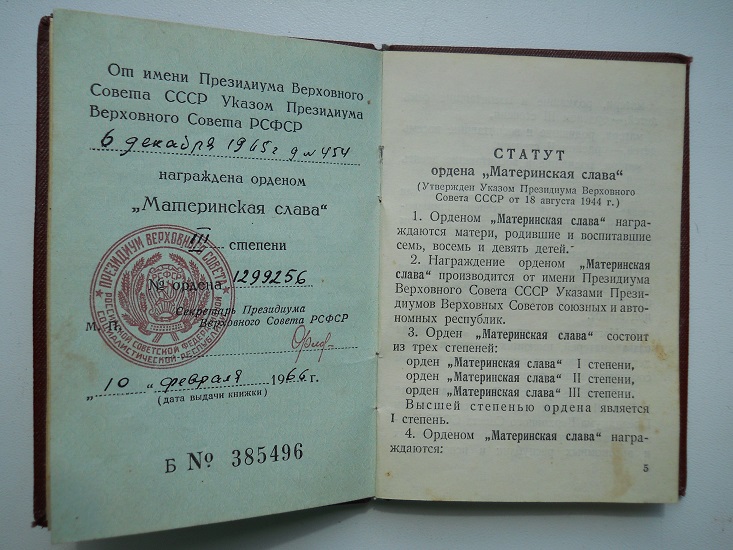 От имени Президиума Верховного
Совета СССР Указом Президиума
Верховного Совета РСФСР
6 декабря 1965 г д № 454
награждена орденом
„Материнская слава“
III степени
№ ордена 1299256
Секретарь Президиума
Верховного Совета РСФСР
М. П.
„10“ февраля 1966 г.
(дата выдачи книжки)
Б № 385496
ПРЕЗИДИУМ ВЕРХОВНОГО СОВЕТА
РОССИЙСКОЙ СОВЕТСКОЙ ФЕДЕРАТИВНОЙ
СОЦИАЛИСТИЧЕСКОЙ РЕСПУБЛИКИ
СТАТУТ
ордена „Материнская слава“
(Утвержден Указом Президиума Верховного
Совета СССР от 18 августа 1944 г.)
1. Орденом „Материнская слава“ награ-
ждаются матери, родившие и воспитавшие
семь, восемь и девять детей.
2. Награждение орденом „Материнская
слава“ производится от имени Президиума
Верховного Совета СССР Указами Прези-
диумов Верховных Советов союзных и авто-
номных республик.
3. Орден „Материнская слава“ состоит
из трех степеней:
орден „Материнская слава“ I степени,
орден „Материнская слава“ II степени,
орден „Материнская слава“ III степени.
Высшей степенью ордена является
I степень.
4. Орденом „Материнская слава“ награ-
ждаются:
5